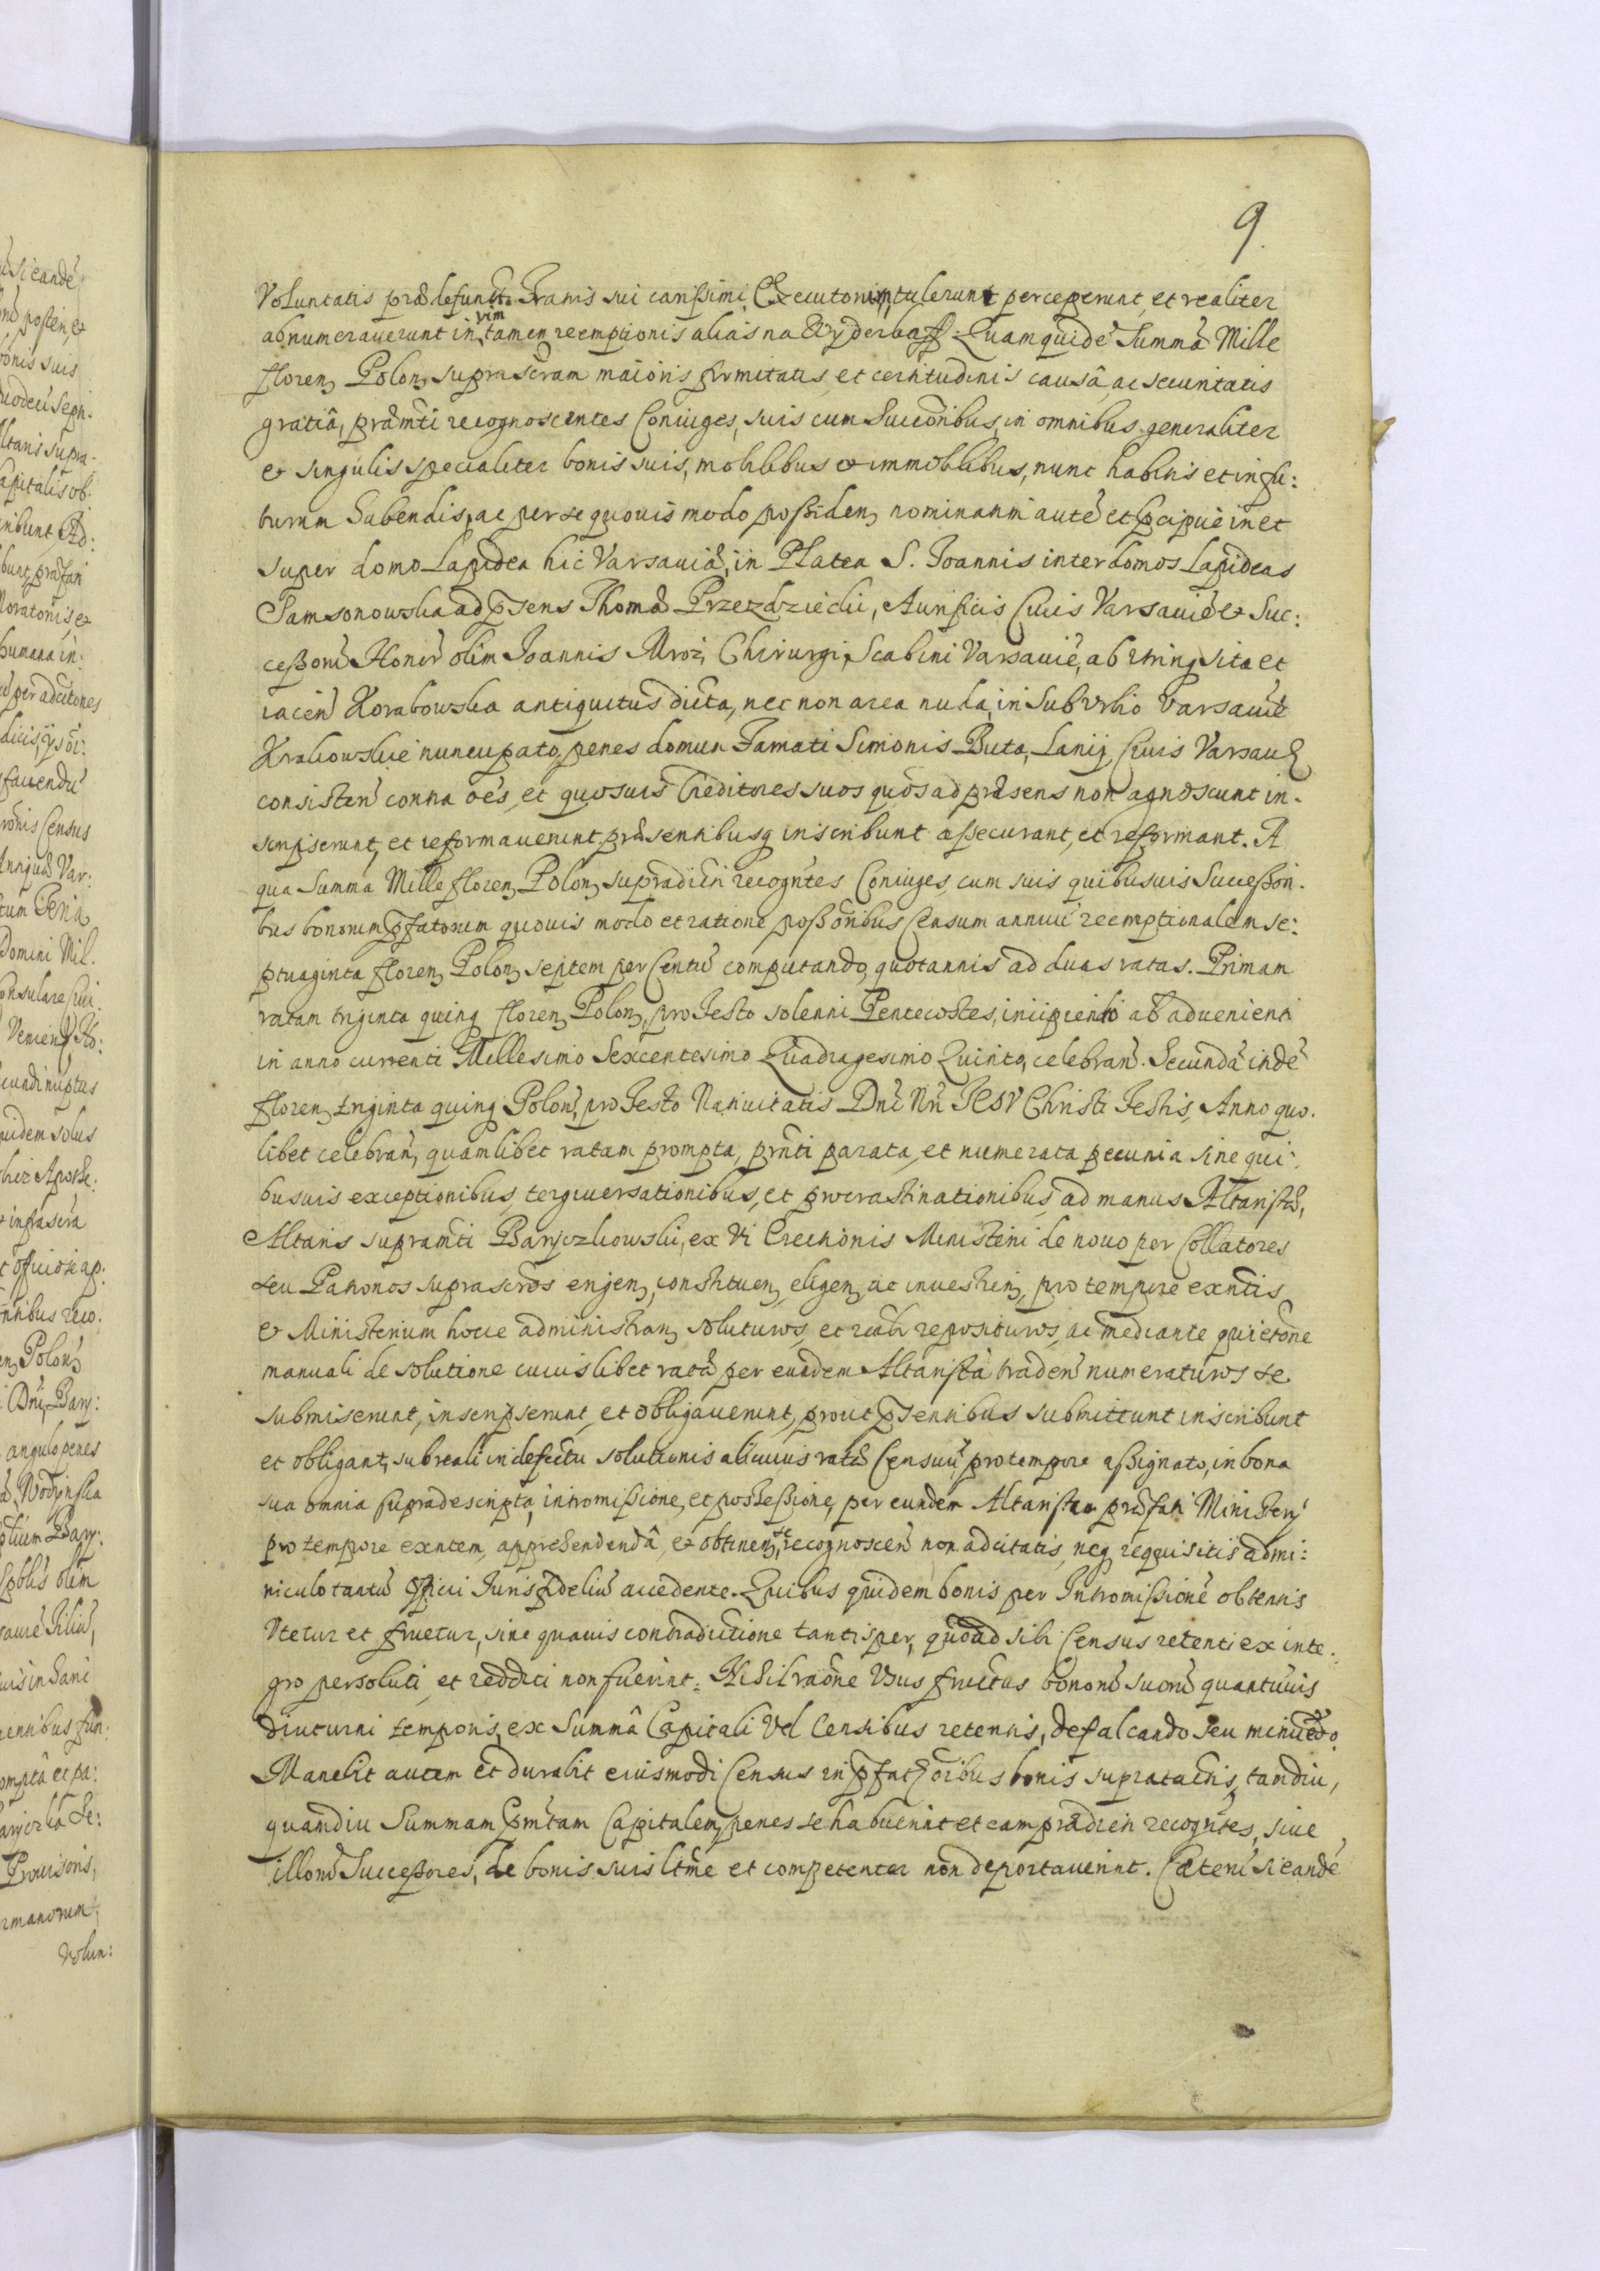 9.
Voluntatis præ defuncti Fratris sui carissimi, Executorum, tulerunt perceperunt, et realiter
abnumeraverunt in vim tamen reemptionis alias na Wyderkaff. Quamquidē Summā Mille
floren Polon suprascram maioris firmitatis, et certitudinis causâ, ac securitatis
gratiâ, præmti recognoscentes Coniuges, suis cum Succoribus, in omnibus generaliter
et singulis specialiter bonis suis, mobilibus et immobilibus, nunc habitis et in fu:
turum habendis, ac per se quovis modo possiden nominatim autē et pcipuè in et
super domo Lapidea hic Varsaviæ, in Platea S. Joannis inter domos Lapideas
Samsonowska ad psens Thomæ Przezdziecki, Aurificis Civis Varsaviē et Suc:
cessorū Honor olim Joannis Mroz, Chirurgi, Scabini Varsavię, ab utrinq sita et
iacen Korabowska antiquitus dicta, nec non area nuda, in SubVrbio Varsavię
Krakowskie nuncupato, penes domum Famati Simonis Buta, Lanij, Civis Varsavę
consisten contra oēs, et quosvis Creditores suos quos ad præsens non agnoscunt in-
scripserunt, et reformaverunt præsentibusq inscribunt assecurant, et reformant. A
qua Summa Mille floren Polon supradicti recogntes Coniuges, cum suis quibusvis Successori-
bus bonorum pfatorum quovis modo et ratione possoribus Censum annuū reemptionalem se:
ptuaginta floren Polon septem per Centū computando, quotannis ad duas ratas. Primam
ratam triginta quinq floren Polon, pro Festo solenni Pentecostes, incipiendo ab advenienti
in anno currenti Millesimo Sexcentesimo Quadragesimo Quinto, celebran. Secundā indē
floren triginta quinq Polon, pro Festo Nativitatis Dni Nri JESV Christi Festis, Anno quo-
libet celebran, quamlibet ratam prompta, prnti parata, et numerata pecunia sine qui-
busvis exceptionibus, tergiversationibus, et procrastinationibus, ad manus Altaristæ,
Altaris supramti Baryczkowski, ex Vi Erectionis Ministerii de novo per Collatores
seu Patronos suprascros erigen, constituen, eligen, ac investien, pro tempore exntis
et Ministerium hocce administran soluturos, et realr reposituros, ac mediante quietone
manuali de solutione cuiuslibet ratæ per eundem Altaristā traden numeraturos se
submiserunt, inscripserunt, et obligaverunt, prout psentibus submittunt inscribunt
et obligant, sub reali in defectu solutionis alicuius ratæ Censuū, pro tempore assignato, in bona
sua omnia supradescripta, intromissione, et possessione, per eundem Altaristam præfati Ministerij
pro tempore exntem, apprehendendâ, et obtinen, se recognoscen non adcitatis, neq requisitis admi:
niculo tantū Officii Juris fidelium accedente. Quibus quidem bonis per Intromissionē obtentis
Vtetur et fruetur, sine quavis contradictione tantisper, quoad sibi Census retenti ex inte-
gro persoluti, et redditi non fuerint. Nihil raone Vsus fructus bonorū suorū quantūvis
diuturni temporis, ex Summâ Capitali Vel Censibus retentis, defalcando seu minuēdo.
Manebit autem et durabit eiusmodi Census in pfatis oibus bonis supratactis, tamdiu,
quamdiu Summam pmtam Capitalem, penes se habuerint et eam prædicti recogntes, sive
illorū Successores, de bonis suis ltme et competenter non deportaverint. Cæterū si eandē